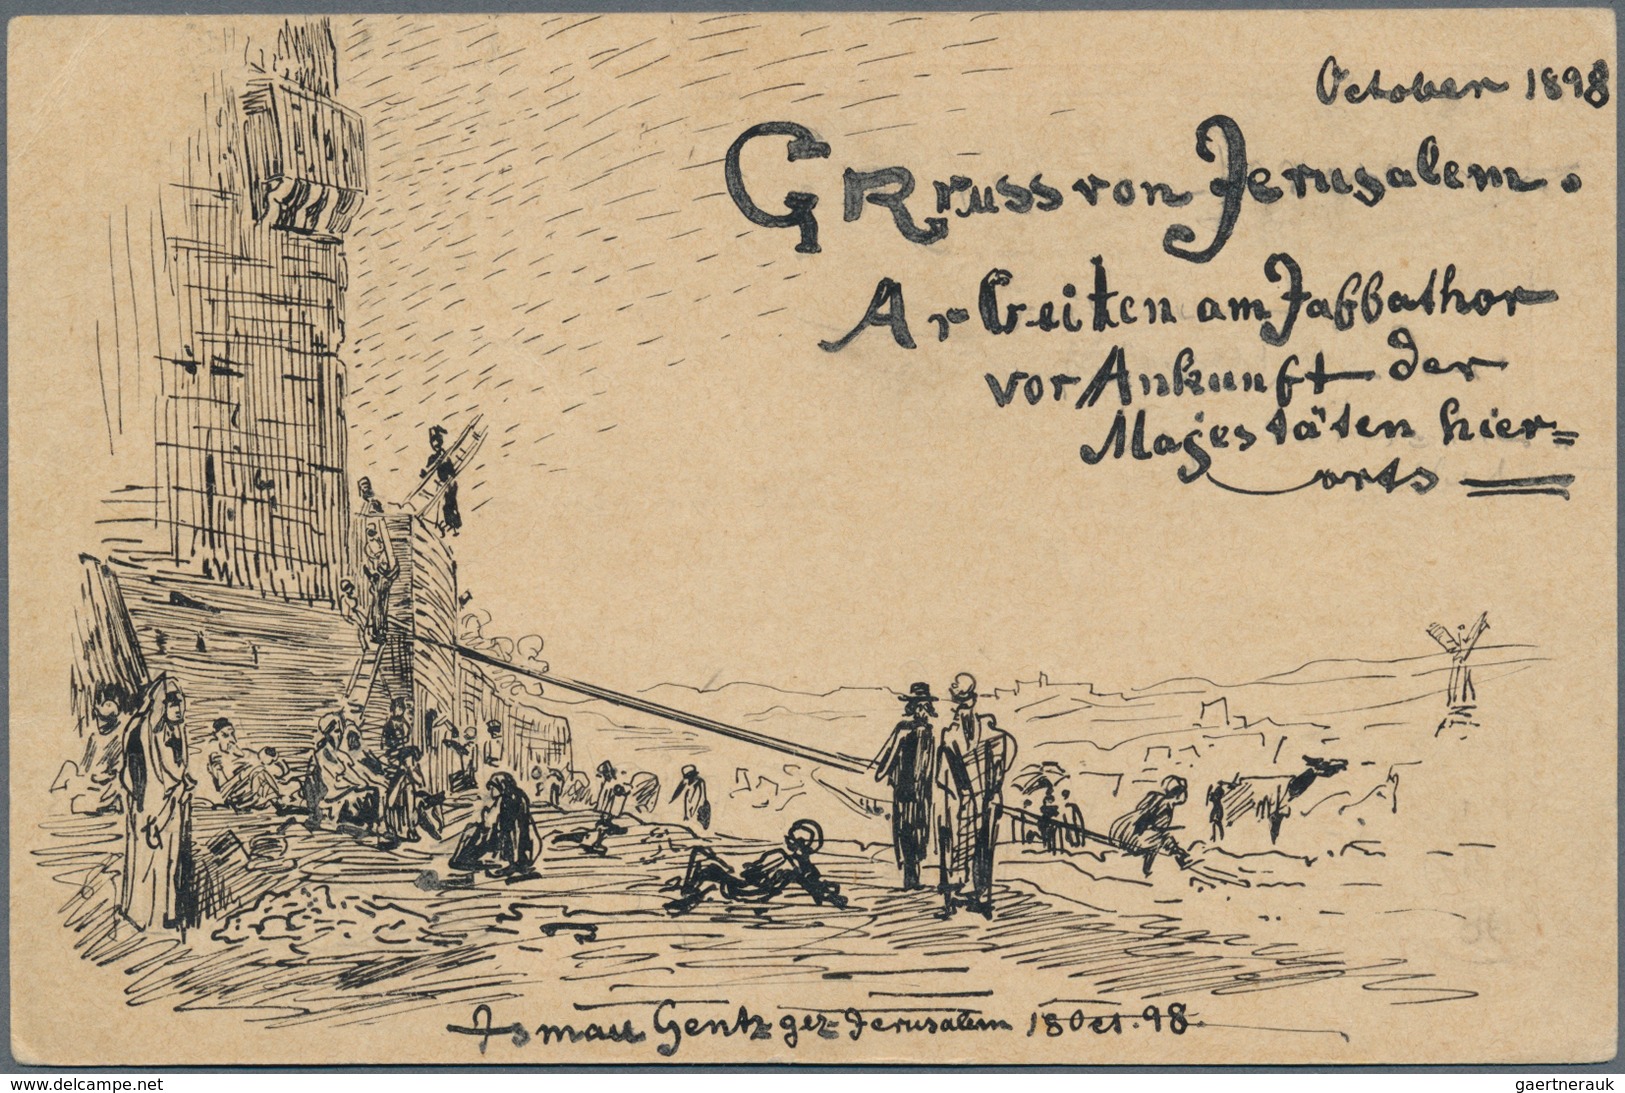 October 1898
GRruss von Jerusalem.
Arbeiten am Jaffathor
vor Ankunft der
Majestäten hier=
orts
Ismael Gentz gez. Jerusalem 18 Oct. 98.
www.delcampe.net
gaertnerauk